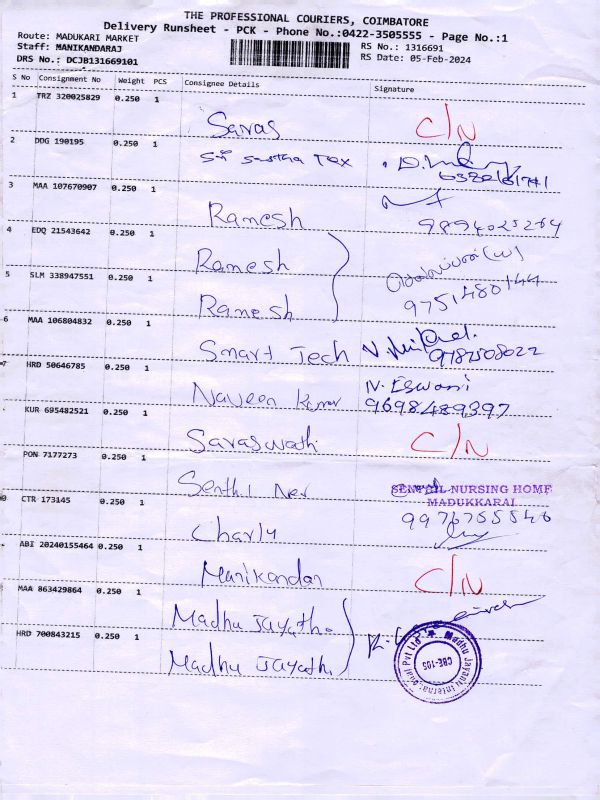 THE PROFESSIONAL COURIERS, COIMBATORE
Delivery Runsheet - PCK - Phone No.:0422-3505555 - Page No.:1
Route: MADUKARI MARKET
RS No.: 1316691
Staff: MANIKANDARAJ
RS Date: 05-Feb-2024
DRS No.: DCJB131669101
S No Consignment No Weight PCS Consignee Details Signature
1 TRZ 320025829 0.250 1
Saras C/N
2 DDG 190195 0.250 1
Sri Sastha Tex
3 MAA 107670907 0.250 1
Ramesh 9894025264
4 EDQ 21543642 0.250 1
Ramesh
5 SLM 338947551 0.250 1
Ramesh 9751480144
6 MAA 106804832 0.250 1
Smart Tech 9787508022
7 HRD 50646785 0.250 1
Naveen Kumar N. Eswari
9698489397
KUR 695482521 0.250 1
Saraswathi C/N
PON 7177273 0.250 1
Senthil Ner SENTHIL NURSING HOME
MADUKKARAI
CTR 173145 0.250 1
9976755546
Charly
ABI 20240155464 0.250 1
Manikandan C/N
MAA 863429864 0.250 1
Madhu Jayanthi
HRD 700843215 0.250 1
Madhu Jayanthi
Madhu Jayanti International Pvt Ltd
CBE-105